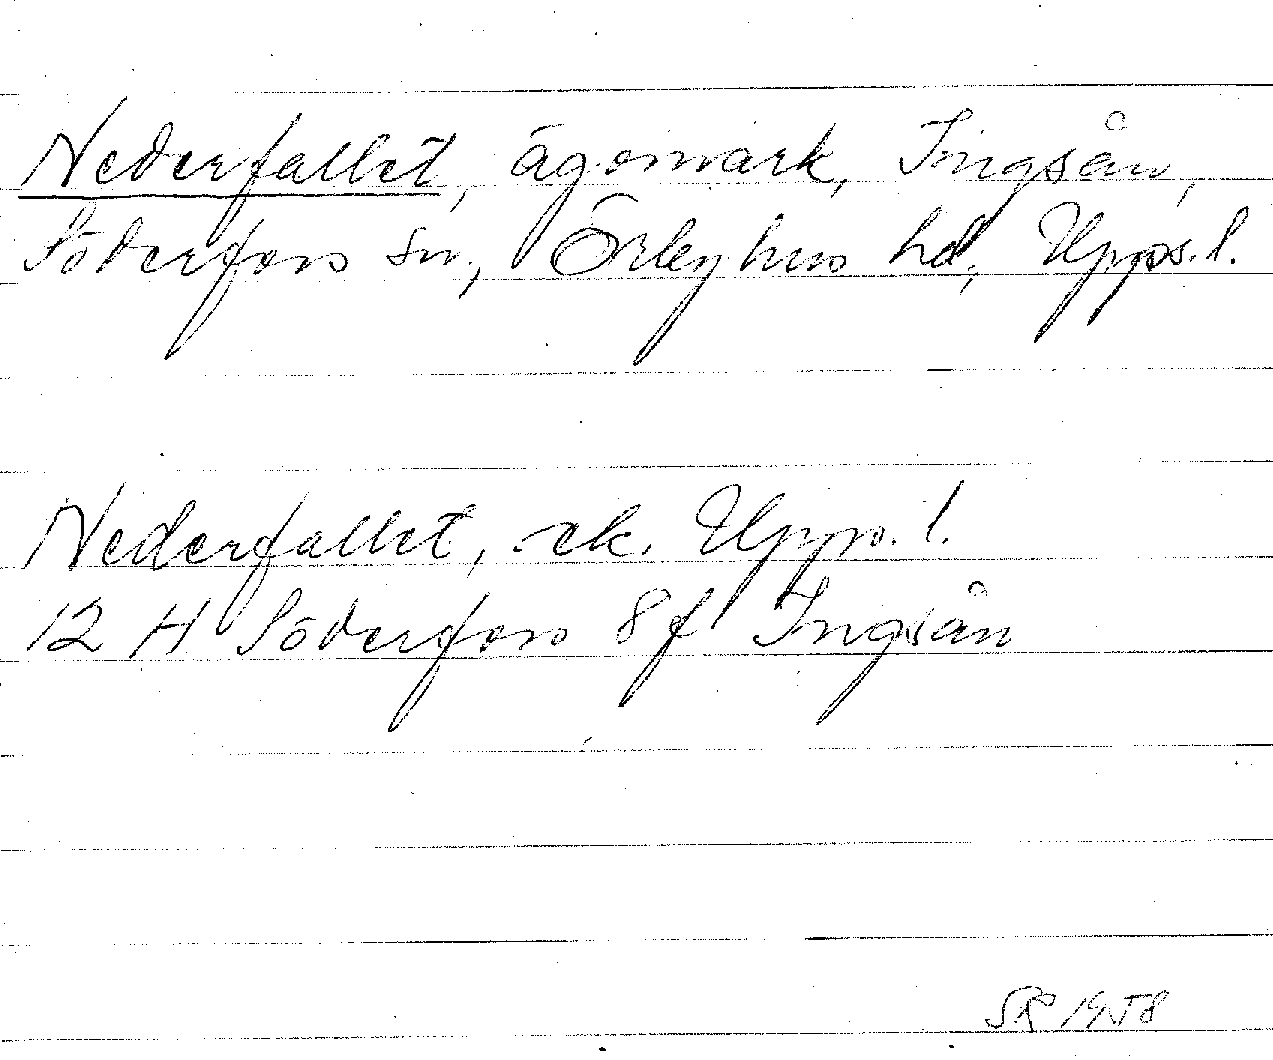 Nederfallet, ägomark, Ingsån,
Söderfors sn, Örbyhus hd, Upps. l.
Nederfallet, ek. Upps. l.
12 H Söderfors 8f Ingsån
SR 1958